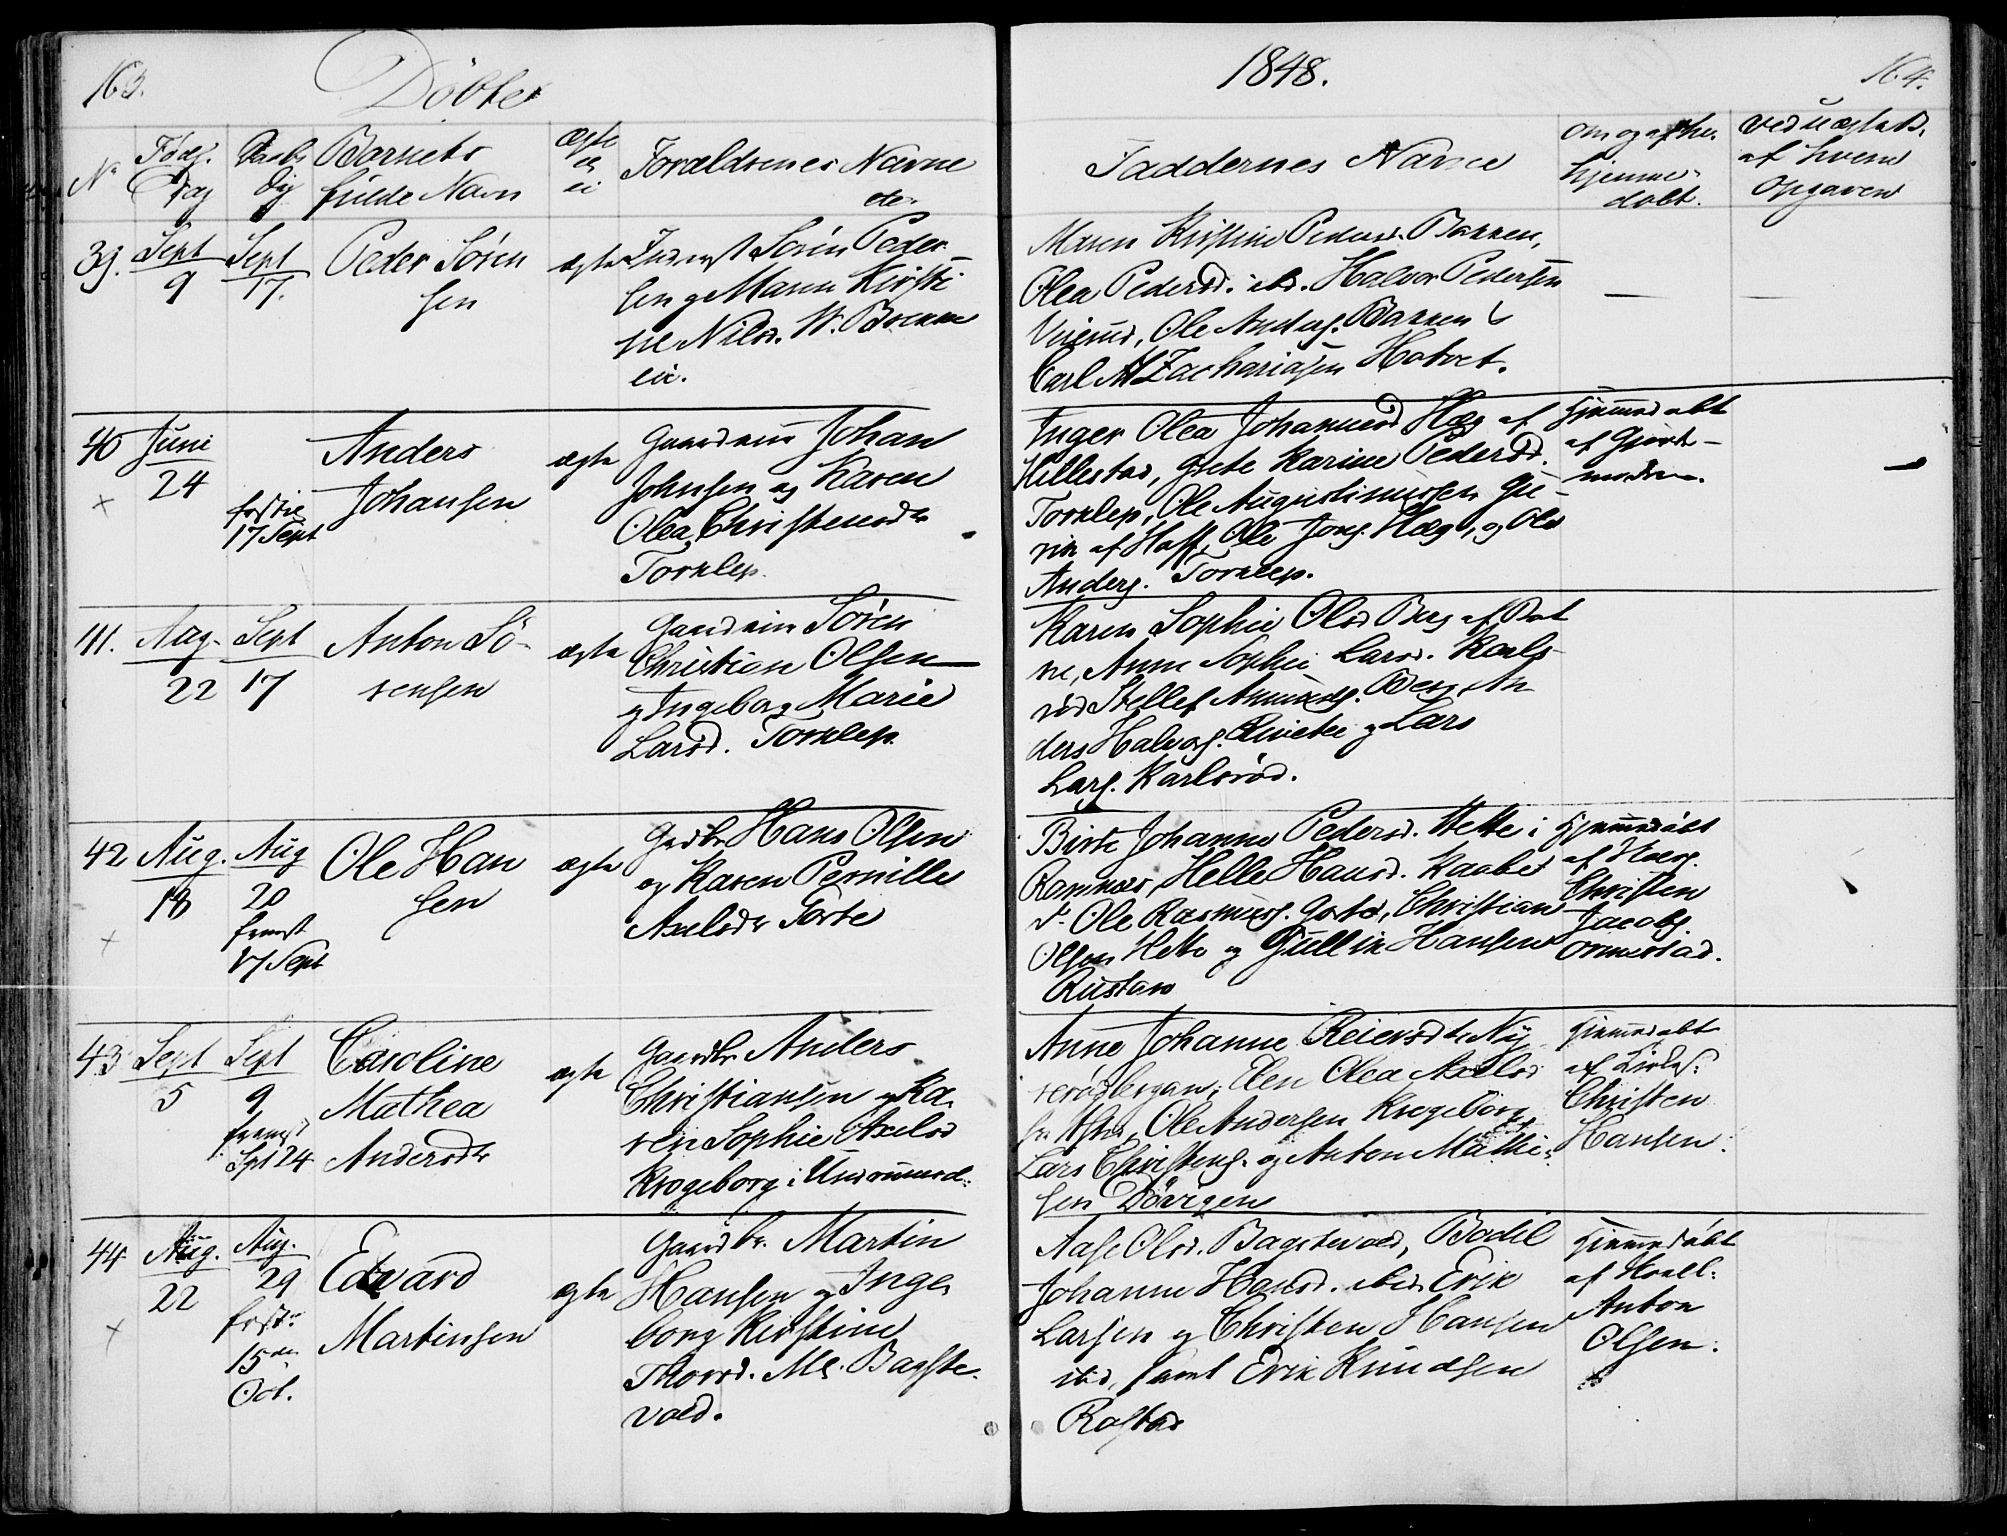 163.
Döbte
1848.
164.
No
Føds.
Dag
Daabs
Dag
Barnets
fulde Navn
ægte
ei
Forældrenes Navne
Faddernes Navne
hjemme-
døbt.
af hvem
Opgaven
39.
Sept
9
Sept
17.
Peder Sören
sen
ægte
Sören Peder
sen og Maren Kirsti
ne Nilsd.
eie.
Maren Kirstine Pedersd. Bakken,
Olea Pedersd. ibd. Halvor Pedersen
Ole Anders. Bakken
Carl M Zachariasen Hotvet.
40
Juni
24
17 Sept
Anders
Johansen
ægte
Gaardm Johan
Johnsen og Karen
Olea Christensdr
Torklep.
Inger Olea Johannesd Hæg af
Hillestad, Grete Karine Pedersd.
Torklep, Ole Augustinussen
af Hoff, Ole Jons. Hæg, og Ole
Anders. Torklep.
hjemmedøbt
af Gjord-
moderen.
41.
Aug.
22
Sept
17
Anton Sö-
rensen
ægte
Gaardm Sören
Christian Olsen
og Ingeborg Marie
Larsd. Torklep.
Karen Sophie Olsd Berg af Bot
ne, Anne Sophie Larsd. Karls
röd Berg, An
ders Halvors. og Lars
Lars. Karlsröd.
42
Aug.
18
Aug
20
fremst
17 Sept
Ole Han
sen
ægte
Gaardbr Hans Olsen
og Karen Pernille
Axelsdr Torte
Birte Johanne Pedersd. Hette i
Ramnæs, Helle Hansd.
Ole Rasmuss. Christian
Olsen Hette og Gullik Hansen
Rustan
hjemmedøbt
af
Christen
Jacobs.
Ormestad.
43
Sept
5
Sept
9
fremst
Spt 24
Caroline
Mathea
Andersdr
ægte
Gaardbr Anders
Christiansen og Ka-
ren Sophie Axelsd
Krogeborg i Undrumsd:
Anne Johanne Reiersdr
Elen Olea Axelsd
Ole Andersen Krogeborg,
Lars Christens. og Anton Mathi-
sen
hjemmedøbt
af
Christen
Hansen.
44
Aug.
22
Aug.
29
15de
Oct.
Edvard
Martinsen
ægte
Gaardbr. Martin
Hansen og Inge
borg Kirstine
Thorsd. Bagste-
vold.
Aase Olsd. Bagstevold, Bodil
Johanne Hansd. ibid. Erik
Larsen og Christen Hansen
ibid, samt Erik Knudsen
Rostad
hjemmedøbt
af
Anton
Olsen.